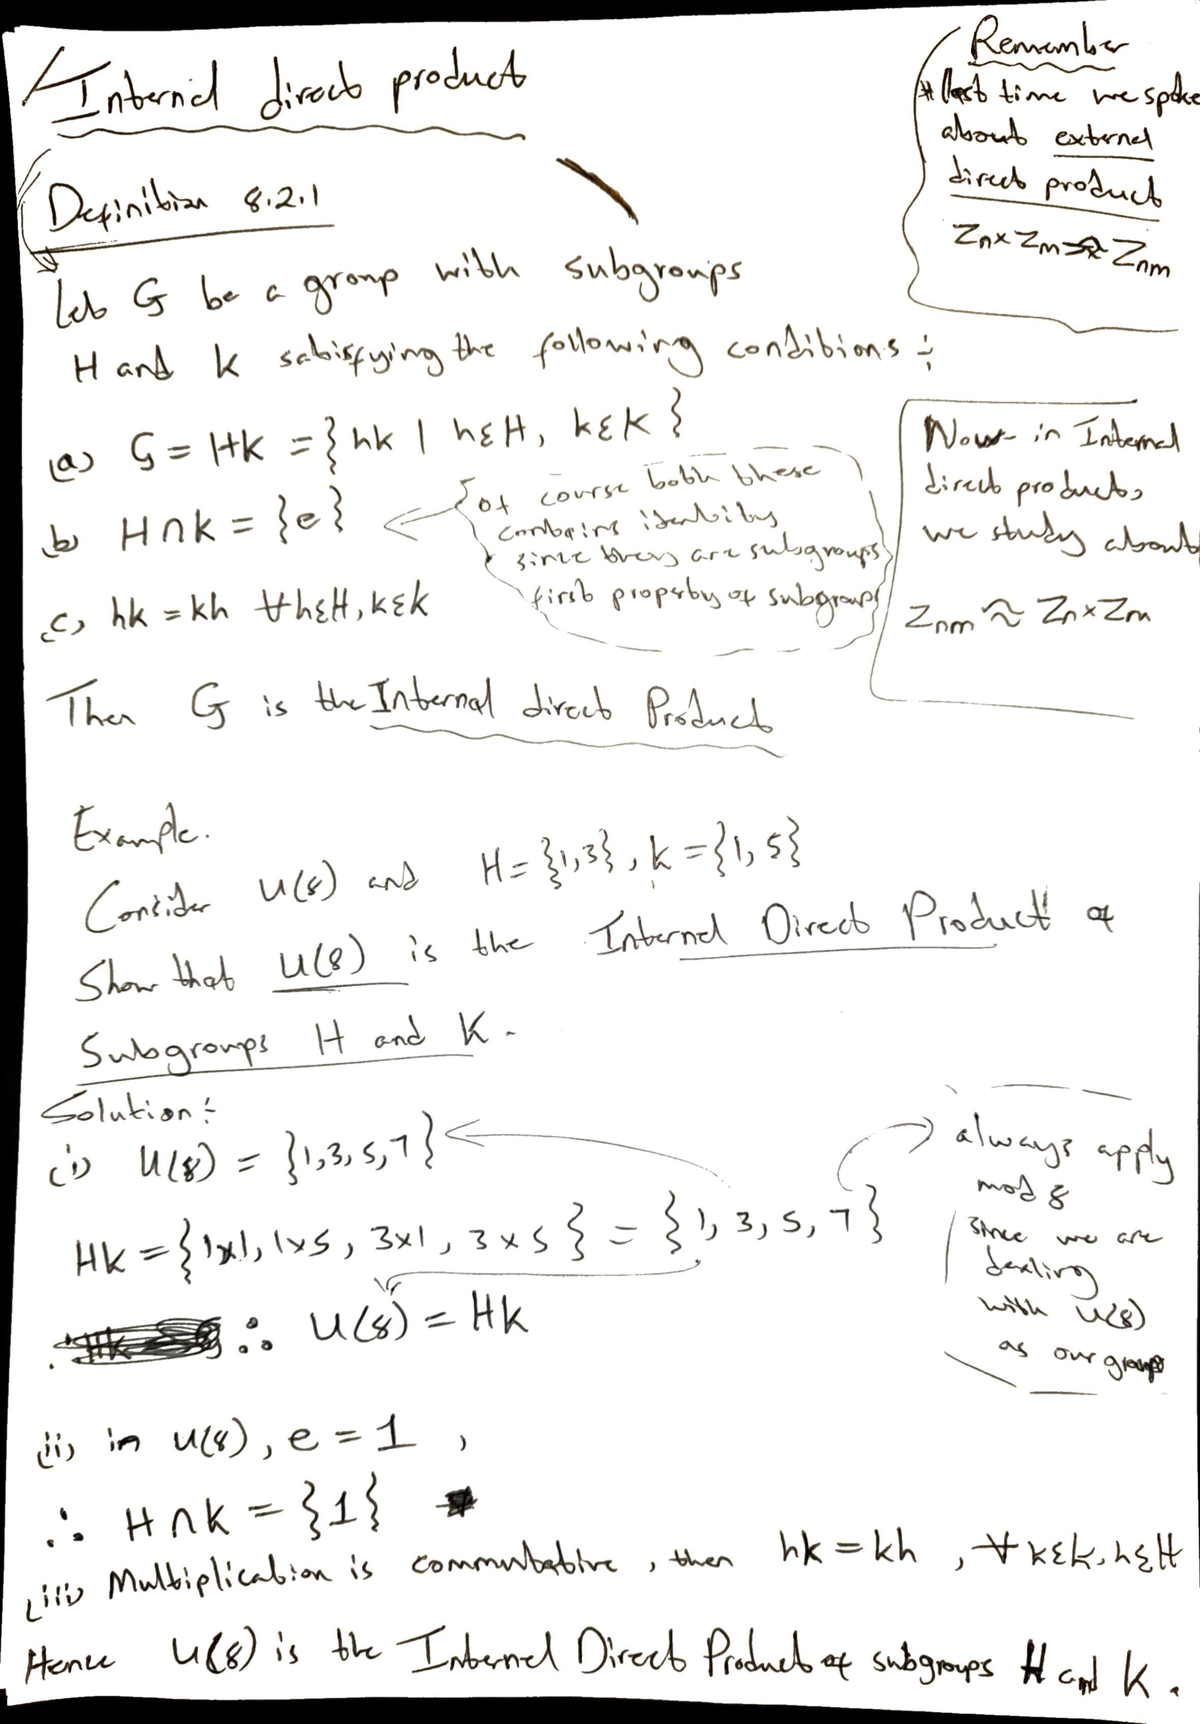 Internal direct product
Remember
* last time we spoke
about external
direct product
Zn x Zm ≈ Znm
Definition 8.2.1
Let G be a group with subgroups
H and K satisfying the following conditions :
(a) G = HK = {hk | h∈H, k∈K}
(b) H∩K = {e}
of course both these
contains identity
since they are subgroups
first property of subgroup
(c) hk = kh ∀h∈H, k∈K
Now in Internal
direct products,
we study about
Znm ≈ Zn x Zm
Then G is the Internal direct Product
Example.
Consider U(8) and H = {1,3}, K = {1, 5}
Show that U(8) is the Internal Direct Product of
Subgroups H and K.
Solution :
(i) U(8) = {1,3,5,7}
HK = {1x1, 1x5, 3x1, 3x5} = {1, 3, 5, 7}
always apply
mod 8
since we are
dealing
with U(8)
as our group
∴ U(8) = HK
(ii) in U(8), e = 1 ,
∴ H∩K = {1}
(iii) Multiplication is commutative, then hk = kh , ∀ k∈K, h∈H
Hence U(8) is the Internal Direct Product of subgroups H and K.